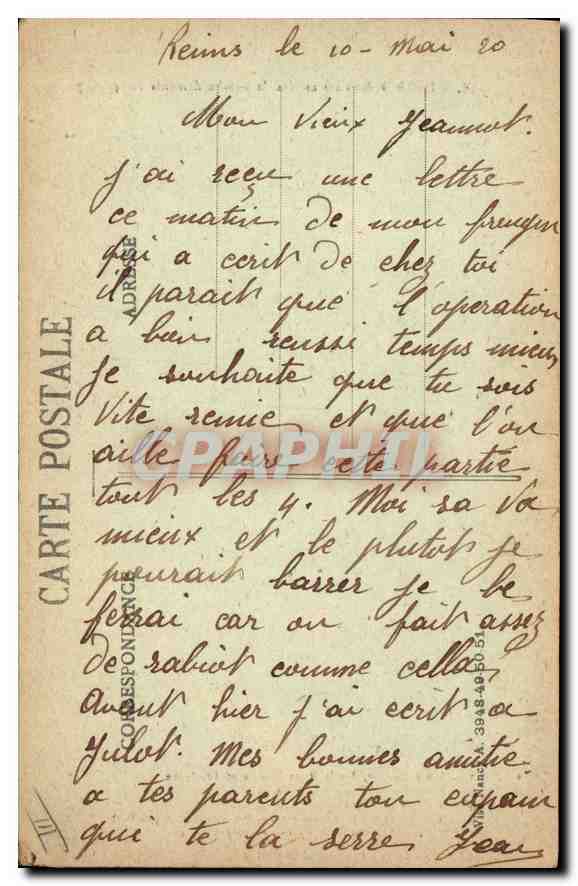 Reims le 10 - Mai 20
Mon Vieux Jeannot.
J'ai reçu une lettre
ce matin de mon frangin
qui a ecrit de chez toi
il parait que l'operation
a bien reussi temps mieux
Je souhaite que tu sois
Vite remie et que l'on
aille faire cette partie
tout les 4. Moi sa va
mieux et le plutot je
pourait barrer je le
ferrai car on fait assez
de rabiot comme cella
Avant hier j'ai ecrit a
Julot. Mes bonnes amitie
a tes parents ton copain
qui te la serre Jean
CARTE POSTALE
CORRESPONDANCE
ADRESSE
A. 3948-49-50-51
CPAPHIL
III